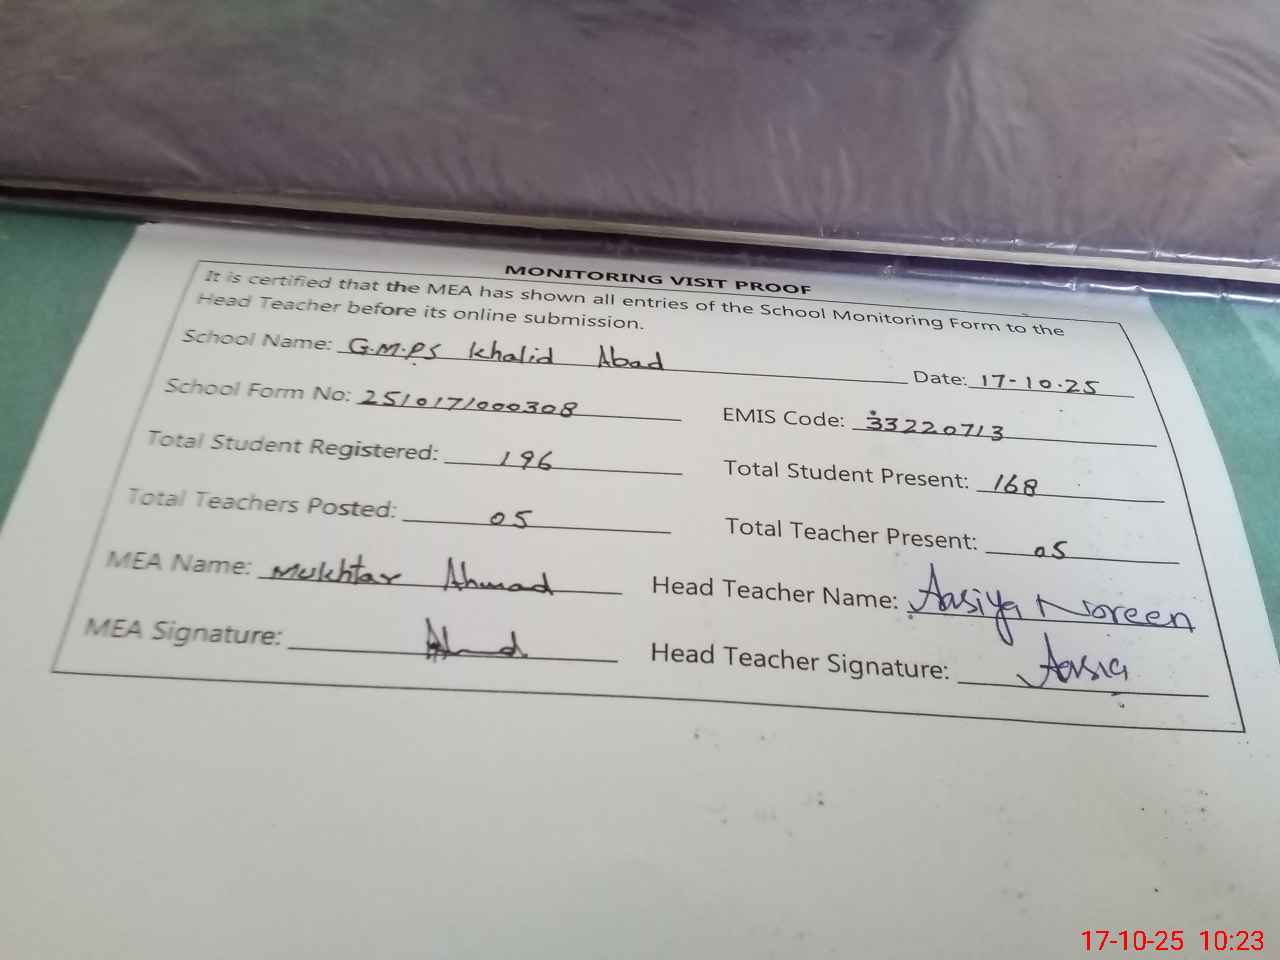 MONITORING VISIT PROOF
It is certified that the MEA has shown all entries of the School Monitoring Form to the
Head Teacher before its online submission.
School Name: G.M.PS Khalid Abad Date: 17-10.25
School Form No: 2510171000308 EMIS Code: 33220713
Total Student Registered: 196 Total Student Present: 168
Total Teachers Posted: 05 Total Teacher Present: 05
MEA Name: Mukhtar Ahmad Head Teacher Name: Aasiya Noreen
MEA Signature: Head Teacher Signature: Aasia
17-10-25 10:23